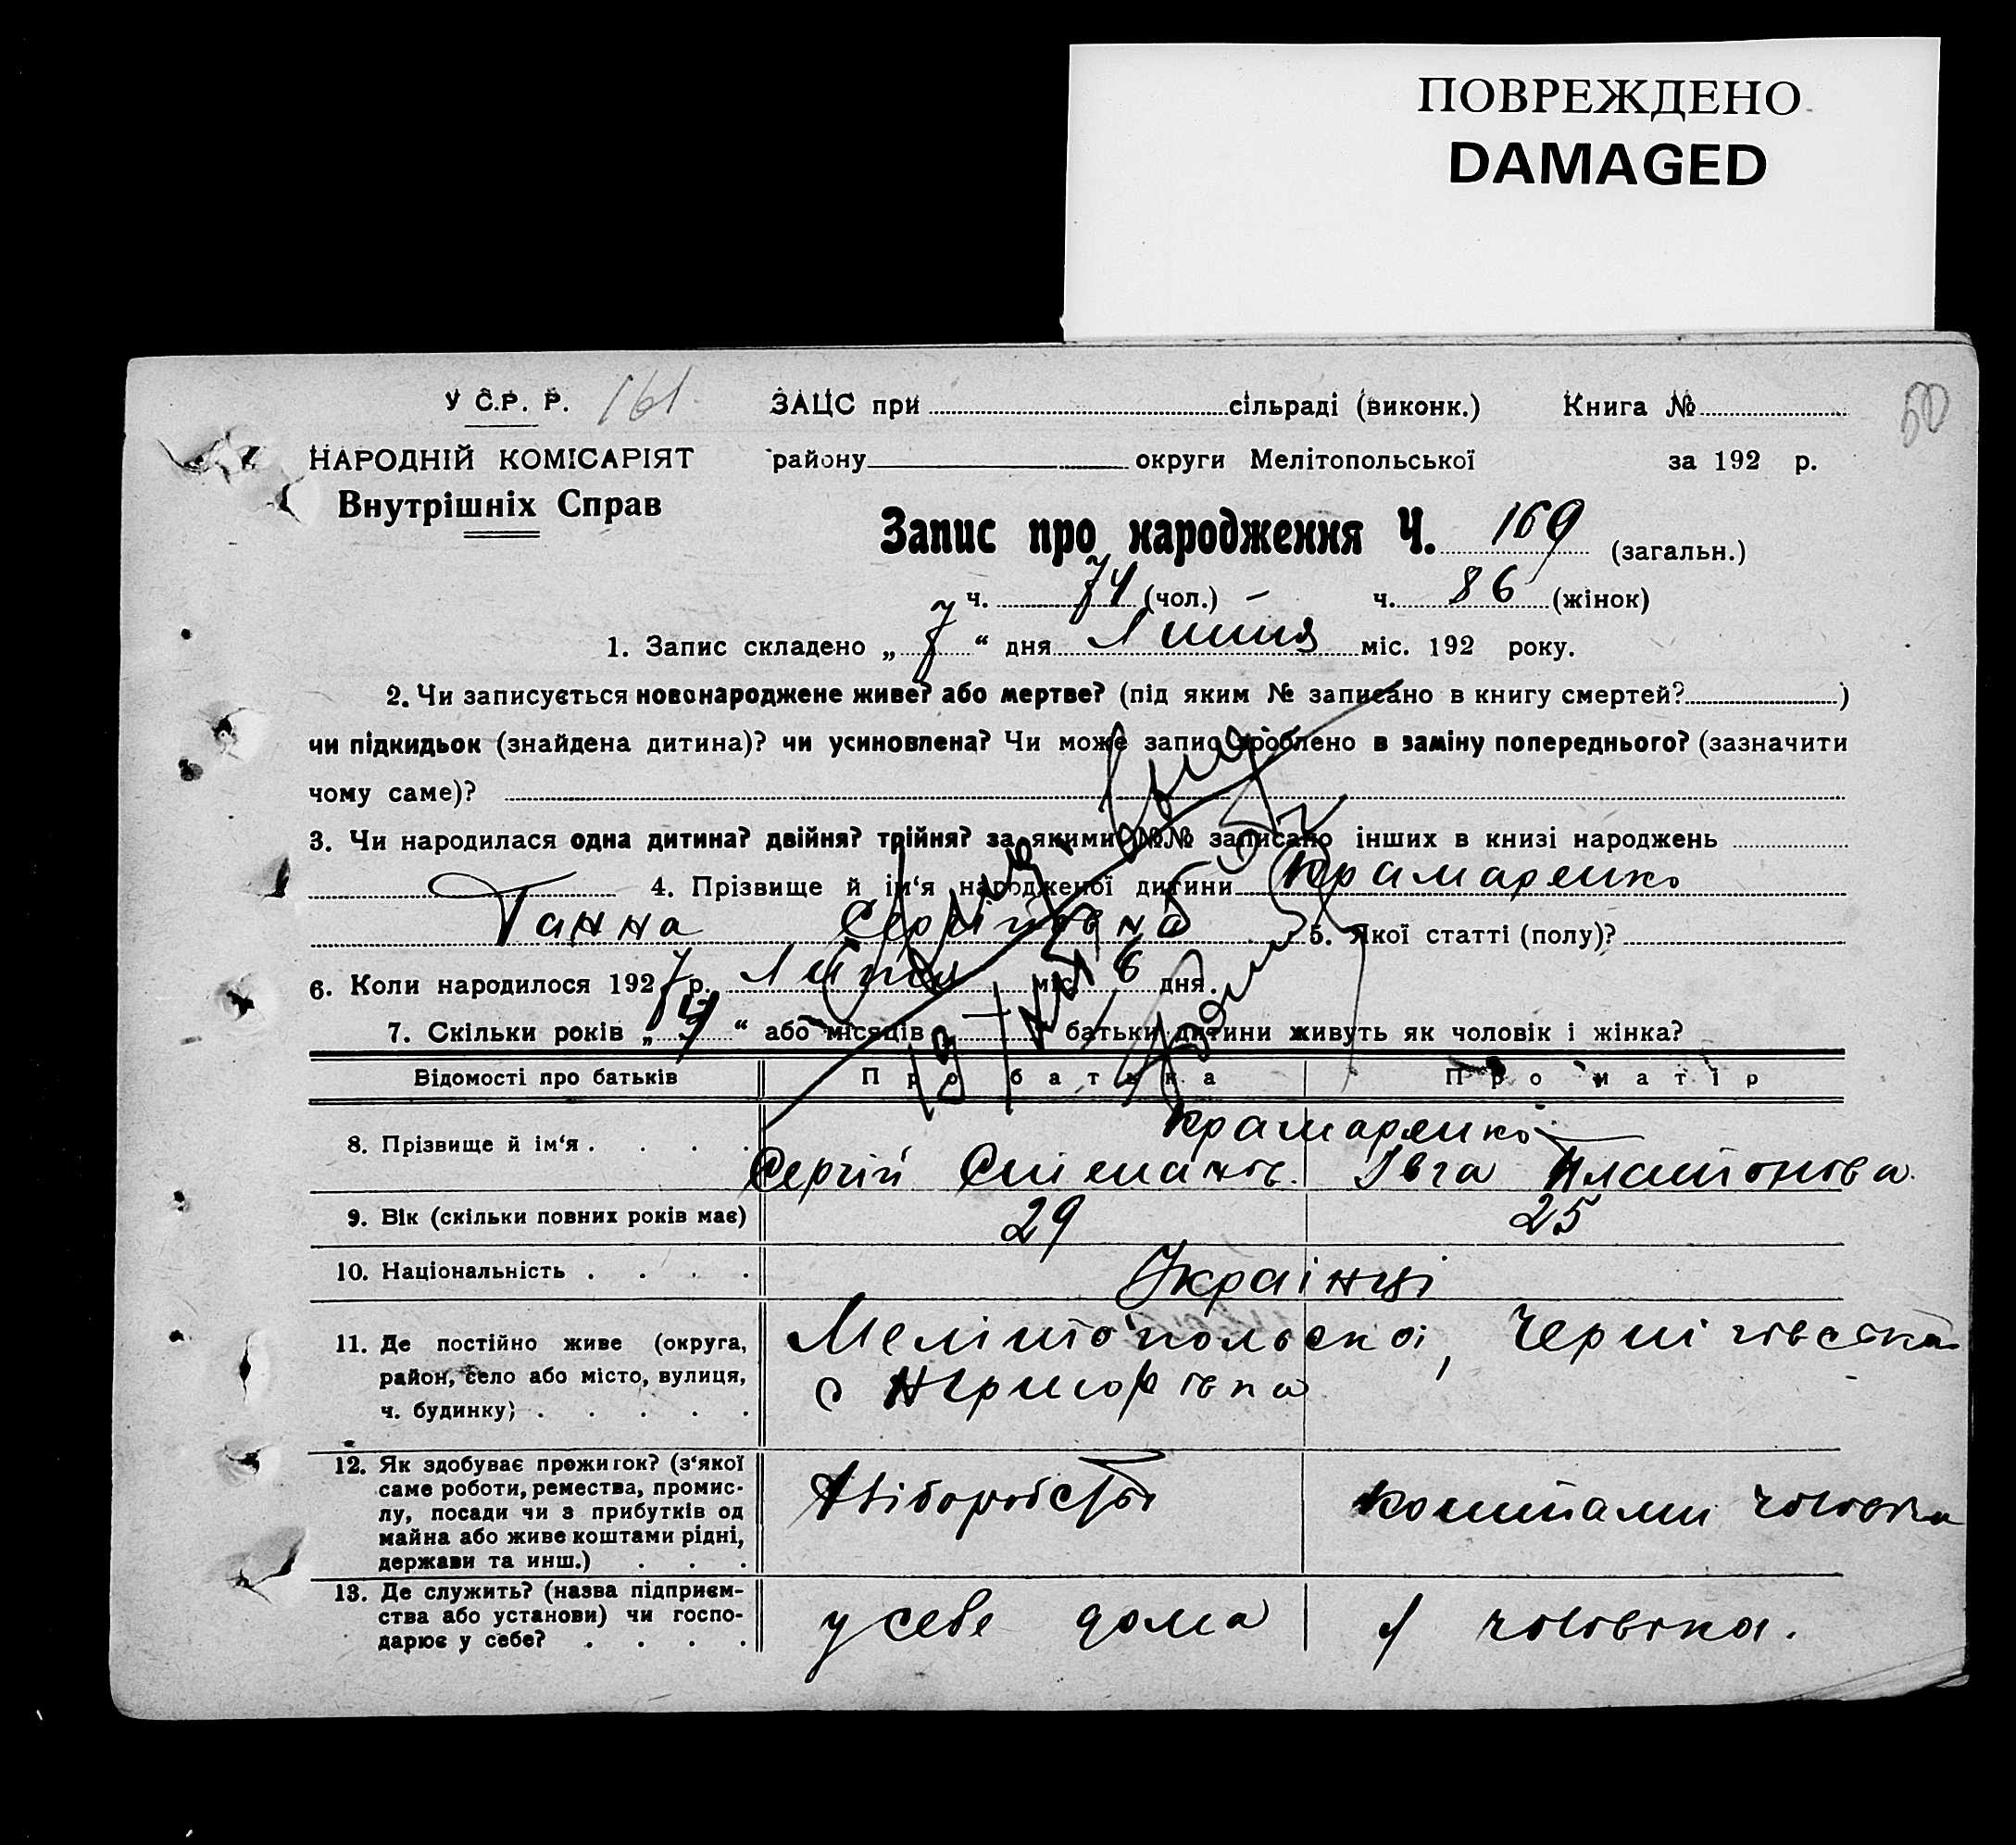 ПОВРЕЖДЕНО
DAMAGED
У С.Р. Р. 161 ЗАЦС при сільраді (виконк.) Книга № 50
НАРОДНІЙ КОМІСАРІЯТ району округи Мелітопольської за 192 р.
Внутрішніх Справ
Запис про народження Ч. 169 (загальн.)
ч. 74 (чол.) – ч. 86 (жінок)
1. Запис складено „ 7 “ дня Липня міс. 192 року.
2. Чи записується новонароджене живе? або мертве? (під яким № записано в книгу смертей? )
чи підкидьок (знайдена дитина)? чи усиновлена? Чи може запис зроблено в заміну попереднього? (зазначити
чому саме)?
3. Чи народилася одна дитина? двійня? трійня? за якими №№ записано інших в книзі народжень
4. Прізвище й ім‘я народженої дитини Крамаренко
Ганна Сергіївна 5. Якої статті (полу)?
6. Коли народилося 1927 р. Липня міс. 6 дня.
7. Скільки років „ “ або місяців батьки дитини живуть як чоловік і жінка?
Відомості про батьків Про батька Про матір
8. Прізвище й ім‘я . . . . Крамаренко
Сергій Степанов. Івга Платонова
9. Вік (скільки повних років має) 29 25
10. Національність . . . . Українці
11. Де постійно живе (округа, Мелітопольскоі, Чернігівска
район, село або місто, вулиця, с
ч. будинку) . . . . .
12. Як здобуває прожиток? (з‘якої
саме роботи, ремества, промис-
лу, посади чи з прибутків од коштами чоловіка
майна або живе коштами рідні,
держави та инш.) . . .
13. Де служить? (назва підприєм-
ства або установи) чи госпо- у себе дома у чоловіка.
дарює у себе? . . . .